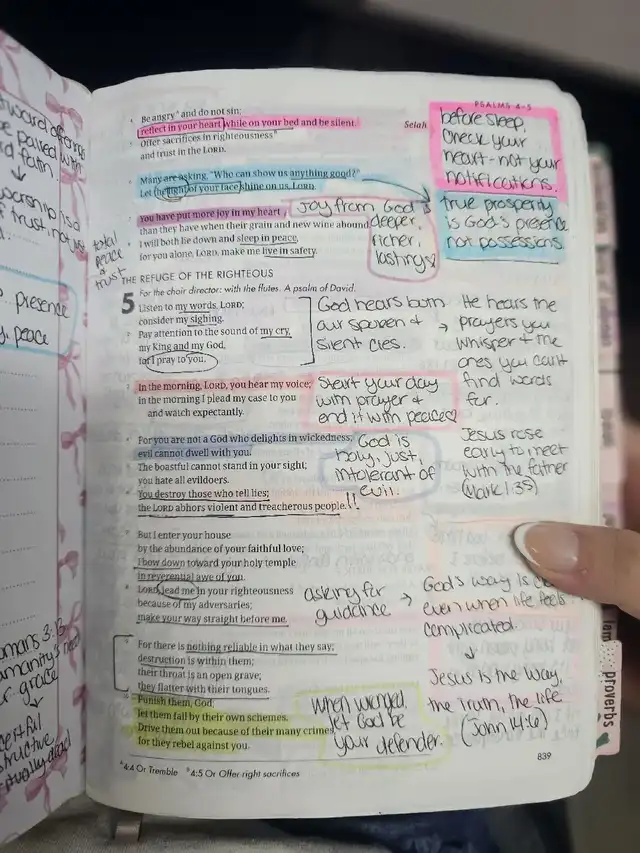 PSALMS 4-5
Be angry and do not sin;
reflect in your heart while on your bed and be silent.
Selah
Offer sacrifices in righteousness
and trust in the LORD.
Many are asking, "Who can show us anything good?"
Let the light of your face shine on us, LORD.
You have put more joy in my heart
than they have when their grain and new wine abound.
I will both lie down and sleep in peace,
for you alone, LORD, make me live in safety.
before sleep,
check your
heart - not your
notifications.
true prosperity
is God's presence
not possessions.
Joy from God is
deeper,
richer,
lasting
total
peace
&
trust
THE REFUGE OF THE RIGHTEOUS
For the choir director: with the flutes. A psalm of David.
5
Listen to my words, LORD;
consider my sighing.
Pay attention to the sound of my cry,
my King and my God,
for I pray to you.
God hears both
our spoken &
silent cies.
He hears the
prayers you
whisper & the
ones you can't
find words
for.
In the morning, LORD, you hear my voice;
in the morning I plead my case to you
and watch expectantly.
Start your day
with prayer &
end it with peace
Jesus rose
early to meet
with the father
(Mark 1:35)
For you are not a God who delights in wickedness;
evil cannot dwell with you.
The boastful cannot stand in your sight;
you hate all evildoers.
You destroy those who tell lies;
the LORD abhors violent and treacherous people.
!!
God is
holy, just,
intolerant of
evil.
But I enter your house
by the abundance of your faithful love;
I bow down toward your holy temple
in reverential awe of you.
LORD, lead me in your righteousness
because of my adversaries;
make your way straight before me.
asking for
guidance
God's way is
even when life feels
complicated.
Jesus is the way,
the truth, the life
(John 14:6)
For there is nothing reliable in what they say;
destruction is within them;
their throat is an open grave;
they flatter with their tongues.
Punish them, God;
let them fall by their own schemes.
Drive them out because of their many crimes,
for they rebel against you.
when wronged,
let God be
your defender.
4:4 Or Tremble
4:5 Or Offer right sacrifices
839
proverbs
presence
peace